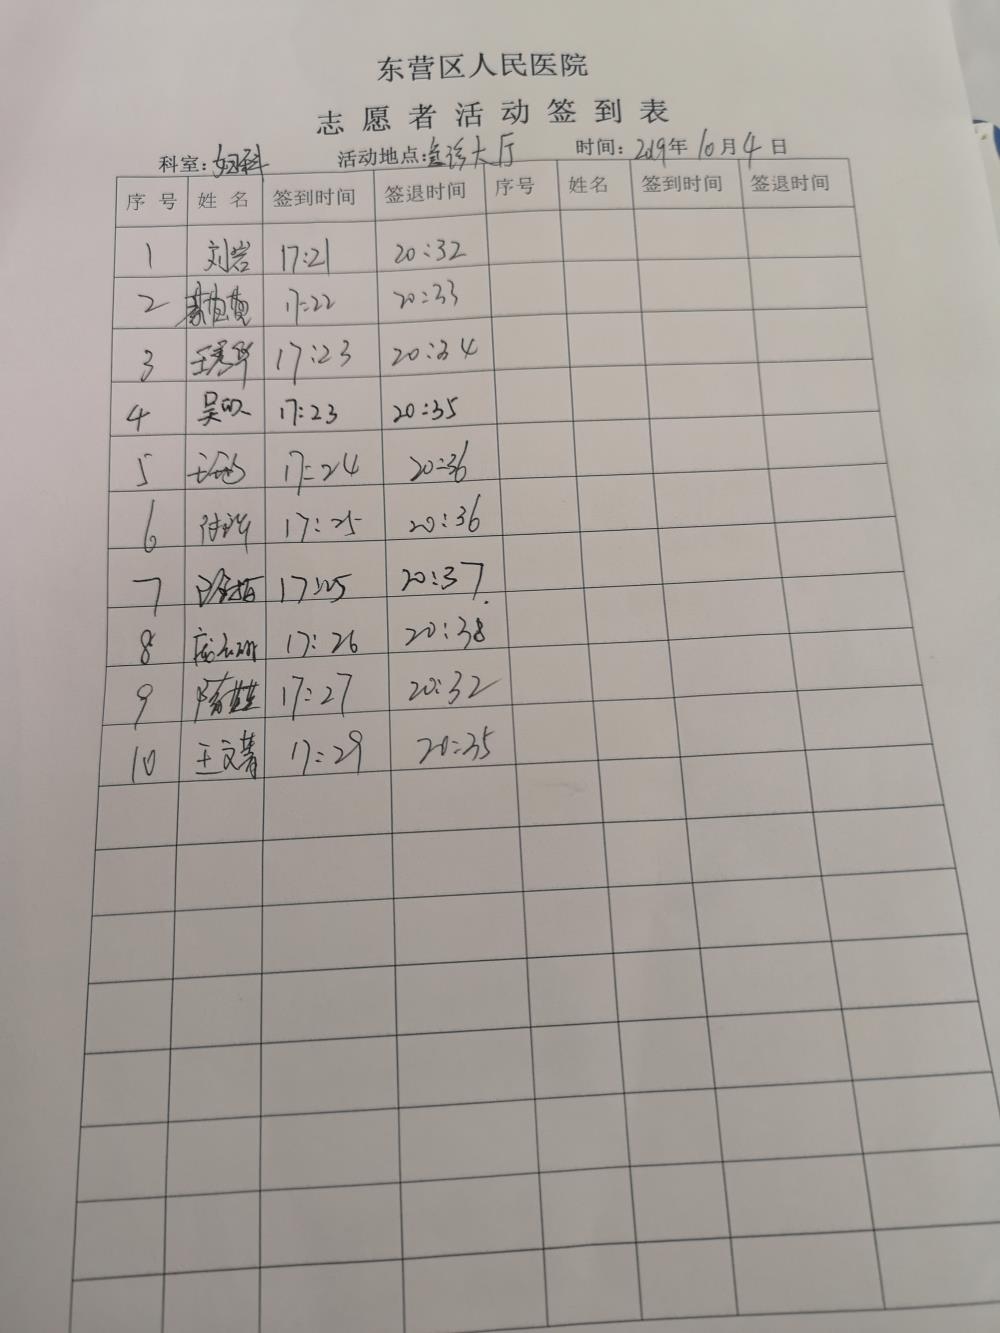 东营区人民医院
志愿者活动签到表
科室：妇科 活动地点：急诊大厅 时间：2019年10月4日
序号 姓名 签到时间 签退时间 序号 姓名 签到时间 签退时间
1 刘岩 17:21 20:32
2 17:22 20:33
3 17:23 20:34
4 17:23 20:35
5 17:24 20:36
6 17:25 20:36
7 17:25 20:37
8 17:26 20:38
9 17:27 20:32
10 王文菁 17:29 20:35